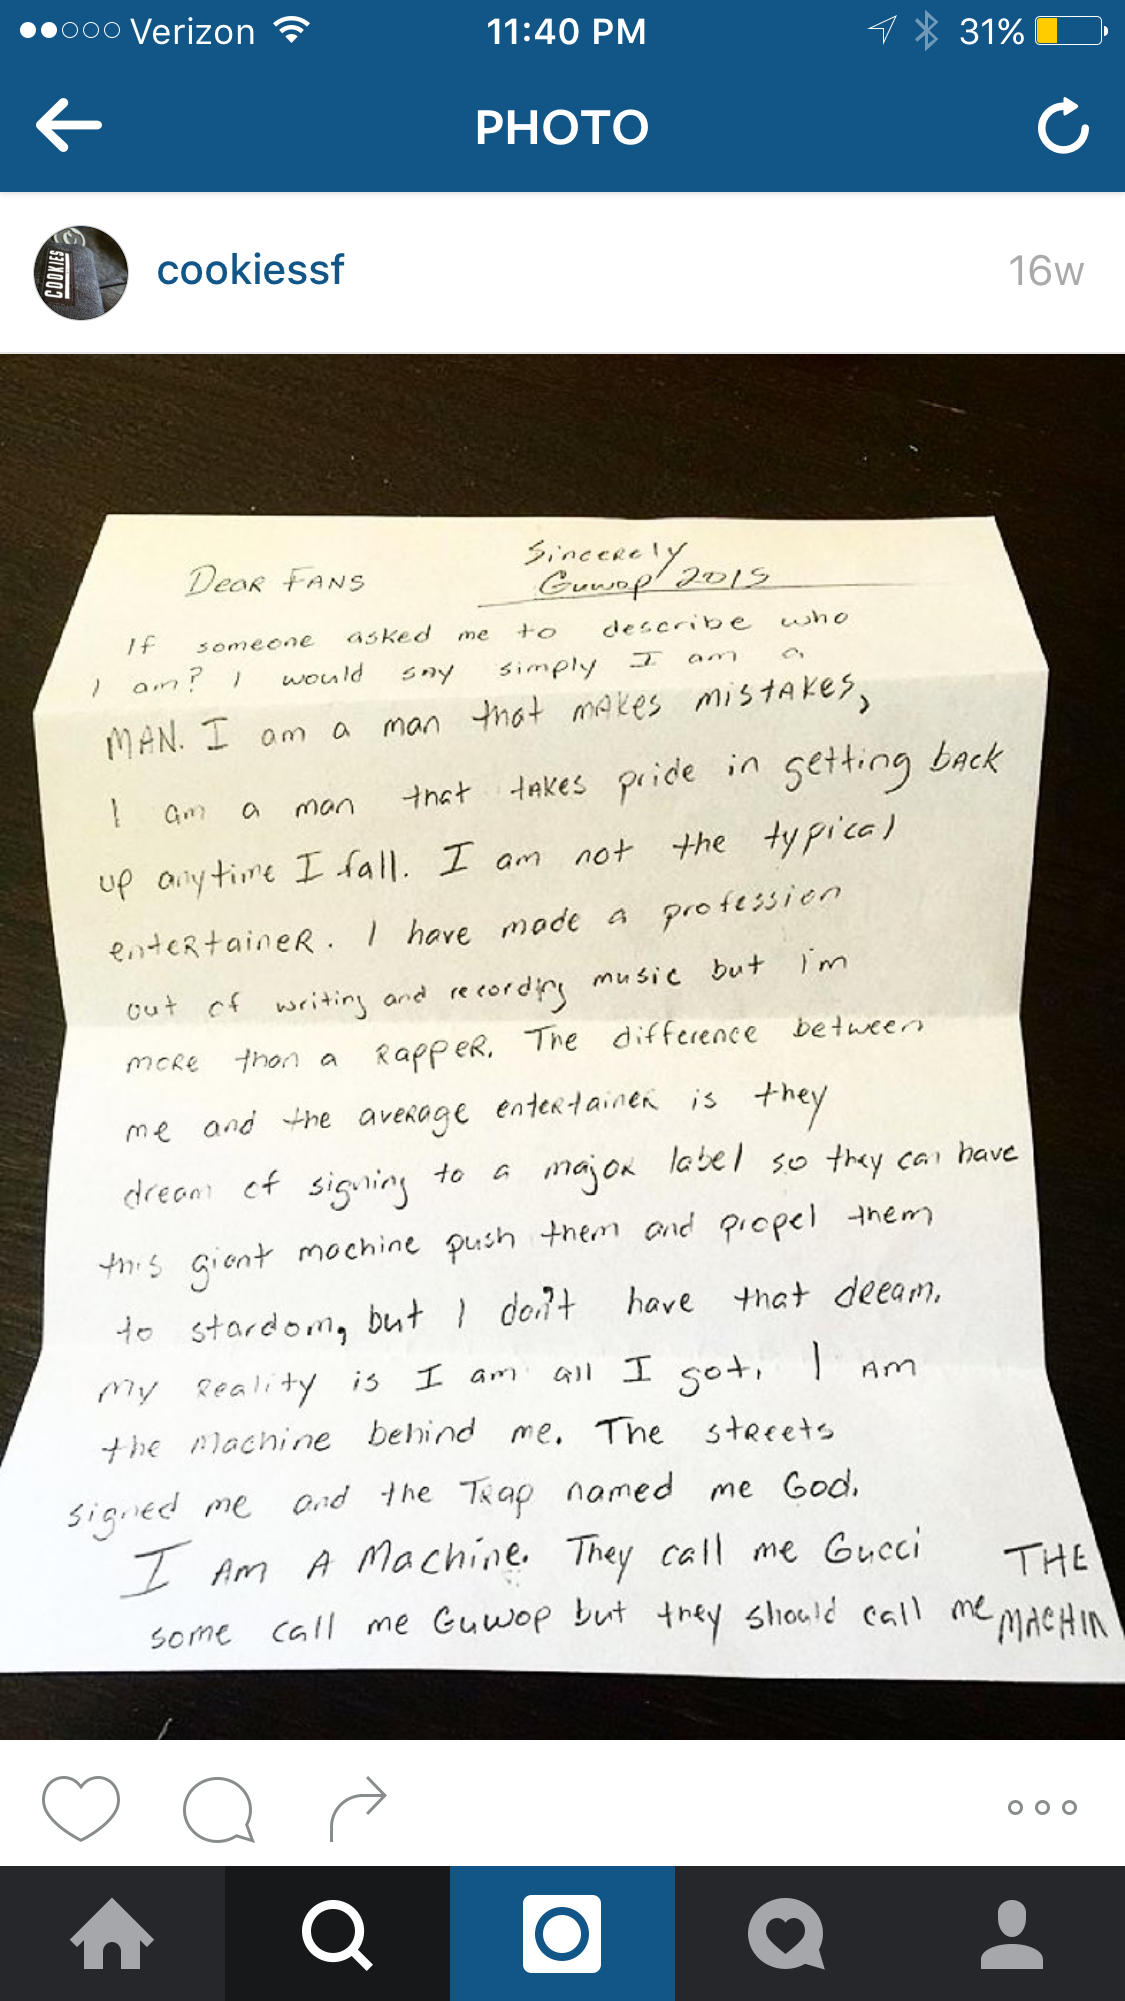 Verizon 11:40 PM 31%
PHOTO
COOKIES
cookiessf 16w
Dear FANS
Sincerely
Guwop 2015
If someone asked me to describe who
I am? I would say simply I am a
MAN. I am a man that makes mistakes,
I am a man that takes pride in getting back
up anytime I fall. I am not the typical
entertainer. I have made a profession
out of writing and recording music but i'm
more than a rapper. The difference between
me and the average entertainer is they
dream of signing to a major label so they can have
this giant machine push them and propel them
to stardom, but I don't have that dream.
My reality is I am all I got. I am
the machine behind me. The streets
signed me and the Trap named me God.
I Am A Machine. They call me Gucci
some call me Guwop but they should call me THE
MACHIN